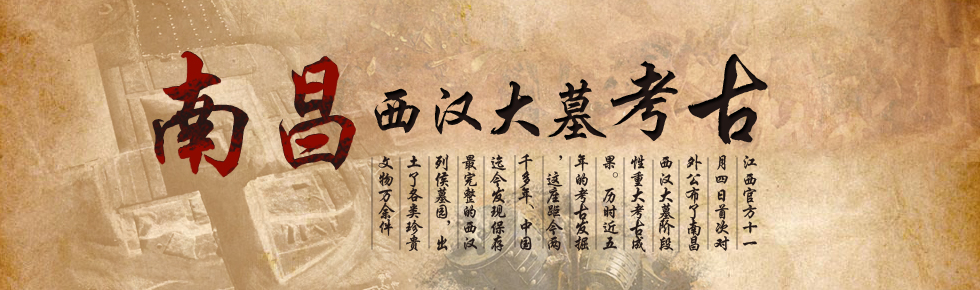 南昌西汉大墓考古
江西官方十一
月四日首次对
外公布了南昌
西汉大墓阶段
性重大考古成
果。历时近五
年的考古发掘
，这座距今两
千多年、中国
迄今发现保存
最完整的西汉
列侯墓园，出
土了各类珍贵
文物万余件